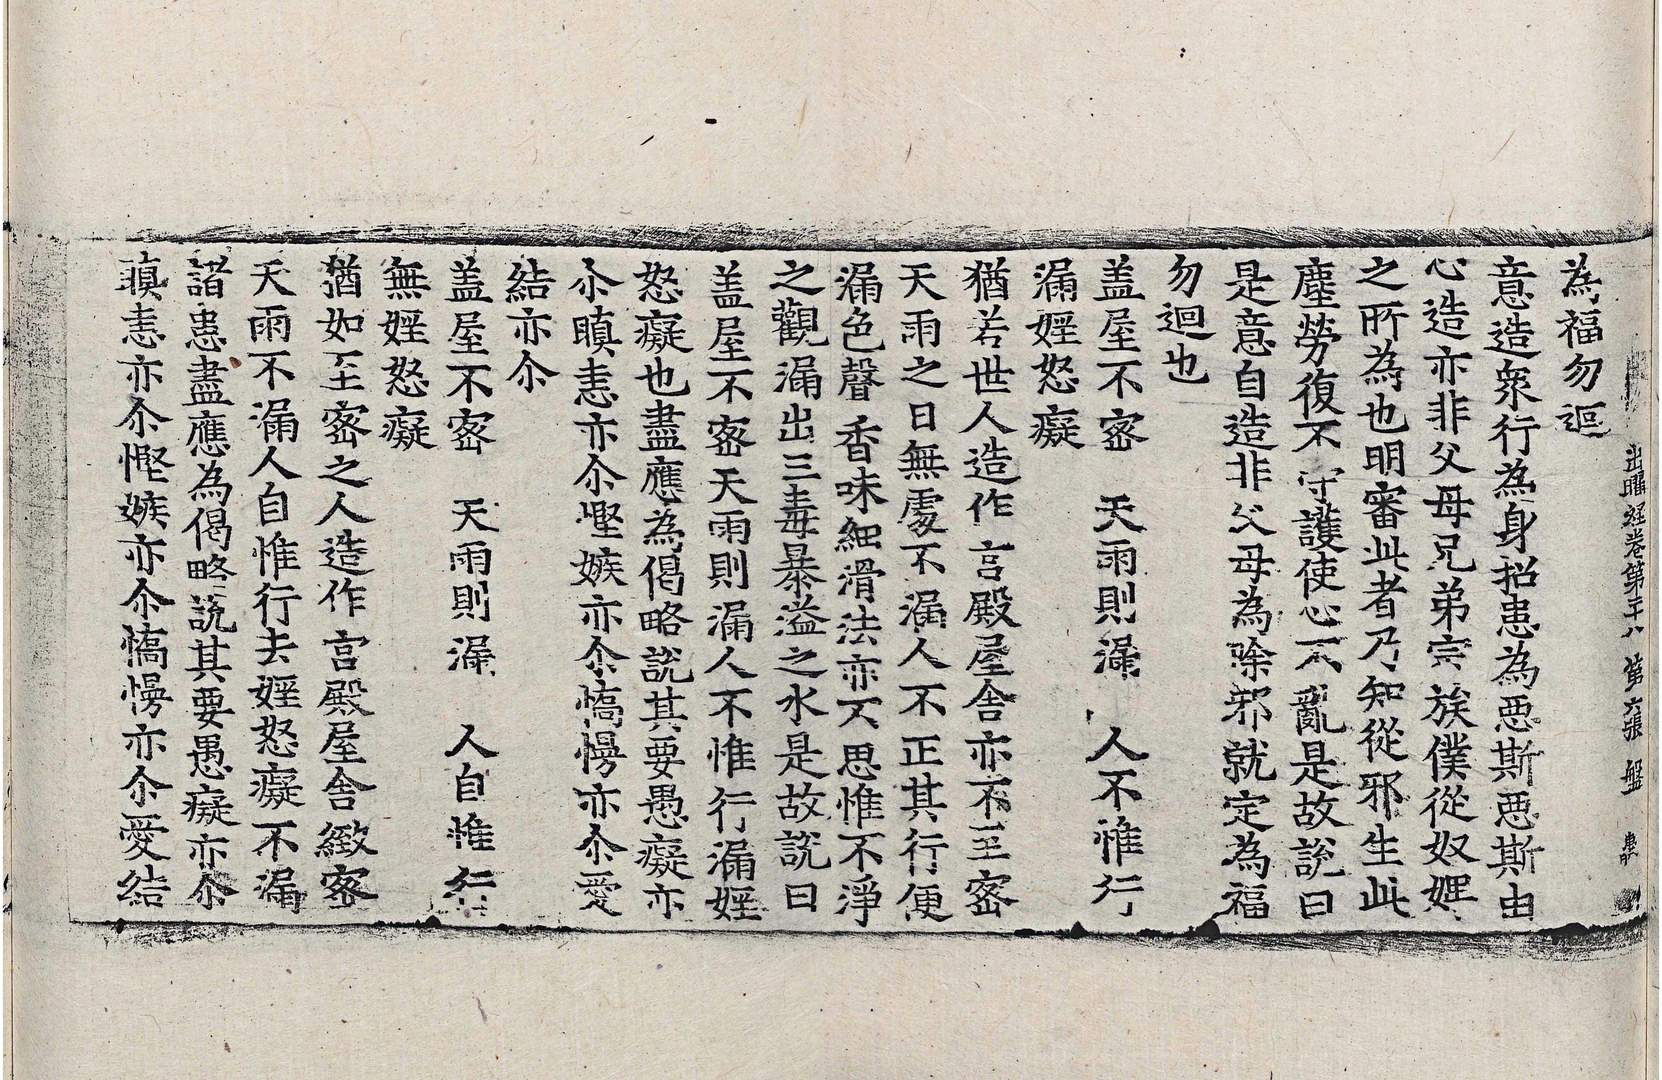 出曜經卷第二十八 第六張 盤
為福勿迴
意造衆行為身招患為惡斯惡斯由
心造亦非父母兄弟宗族僕從奴婢
之所為也明審此者乃知從邪生此
塵勞復不守護使心不亂是故說曰
是意自造非父母為除邪就定為福
勿迴也
盖屋不密 天雨則漏 人不惟行
漏婬怒癡
猶若世人造作宮殿屋舍亦不至密
天雨之日無處不漏人不正其行便
漏色聲香味細滑法亦不思惟不淨
之觀漏出三毒暴溢之水是故說曰
盖屋不密天雨則漏人不惟行漏婬
怒癡也盡應為偈略說其要愚癡亦
尒瞋恚亦尒慳嫉亦尒憍慢亦尒愛
結亦尒
盖屋不密 天雨則漏 人自惟行
無婬怒癡
猶如至密之人造作宮殿屋舍緻密
天雨不漏人自惟行去婬怒癡不漏
諸患盡應為偈略說其要愚癡亦尒
瞋恚亦尒慳嫉亦尒憍慢亦尒愛結